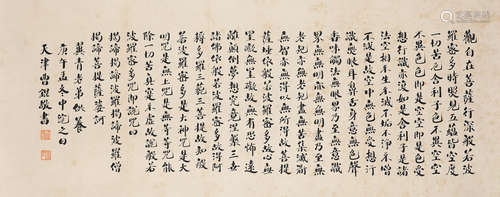 觀自在菩薩行深般若波
羅蜜多時照見五蘊皆空度
一切苦厄舍利子色不異空空
不異色色即是空空即是色受
想行識亦復如是舍利子是諸
法空相不生不滅不垢不淨不增
不減是故空中無色無受想行
識無眼耳鼻舌身意無色聲
香味觸法無眼界乃至無意識
界無無明亦無無明盡乃至無
老死亦無老死盡無苦集滅道
無智亦無得以無所得故菩提
薩埵依般若波羅蜜多故心無
罣礙無罣礙故無有恐怖遠
離顛倒夢想究竟涅槃三世
諸佛依般若波羅蜜多故得阿
耨多羅三藐三菩提故知般
若波羅蜜多是大神咒是大
明咒是無上咒是無等等咒能
除一切苦真實不虛故說般若
波羅蜜多咒即說咒曰
揭諦揭諦波羅揭諦波羅僧
揭諦菩提薩婆訶
青老弟供養
庚午孟冬中浣之日
天津曹錕敬書